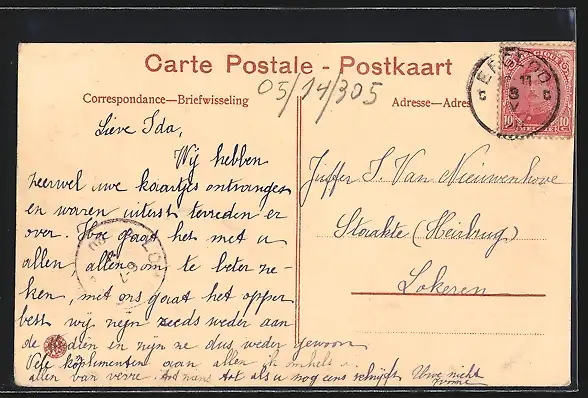 Carte Postale - Postkaart
05/14/305
Correspondance—Briefwisseling
Adresse—Adres
Lieve Ida,
Wij hebben
zeerwel uwe kaartjes ontvangen
en waren uiterst terreden er
over. Hoe gaat het met u
allen, allen om te beter ze-
ken, met ons gaat het opper
best wij zijn reeds weder aan
de dien en zijn ze dus weder gewoon
Vele koplimenten aan allen ik
allen van verre. tot als u nog eens schrijft Uwe nicht
Juffer I. Van Nieuwenhove
Staakte (Heirbrug)
Lokeren
10 10